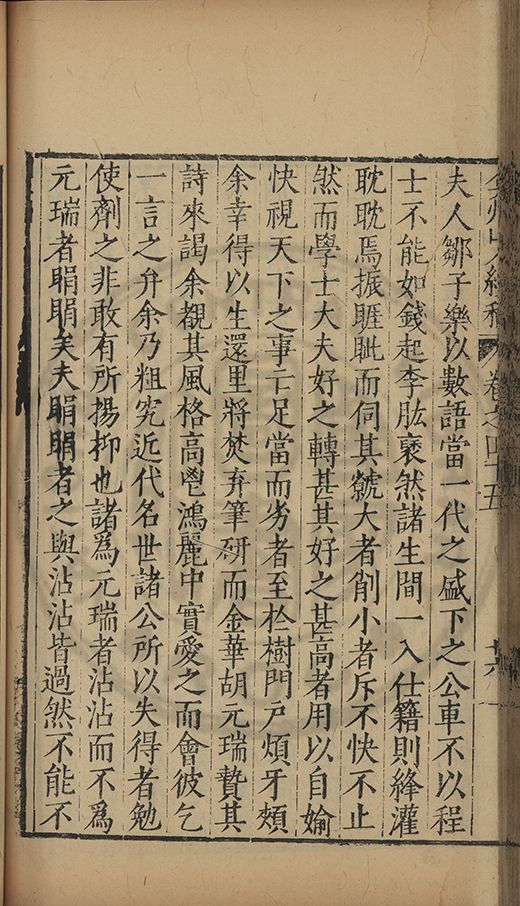 卷之四十五
夫人鄒子樂以數語當一代之盛下之公車不以程
士不能如錢起李肱褎然諸生間一入仕籍則絳灌
耽耽焉振睚眦而伺其虩大者削小者斥不快不止
然而學士大夫好之轉甚其好之甚高者用以自媮
快視天下之事亡足當而劣者至扵樹門戶煩牙頰
余幸得以生還里將焚弃筆研而金華胡元瑞贄其
詩來謁余覩其風格高鬯鴻麗中實愛之而會彼乞
一言之弁余乃粗究近代名世諸公所以失得者勉
使劑之非敢有所揚抑也諸爲元瑞者沾沾而不爲
元瑞者睊睊矣夫睊睊者之與沾沾皆過然不能不